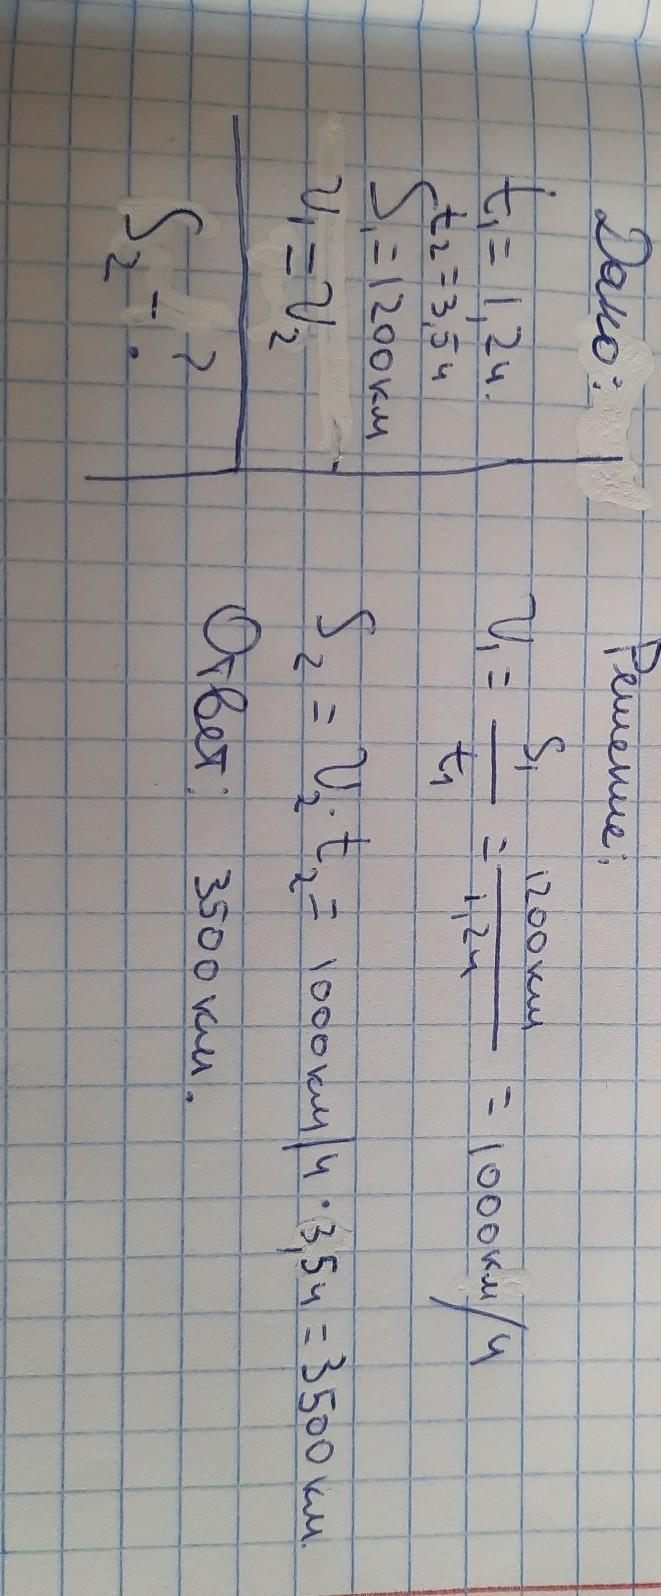 Дано:
t₁ = 1,2ч.
t₂ = 3,5ч
S₁ = 1200км
υ₁ = υ₂
S₂ - ?
Решение:
υ₁ = S₁/t₁ = 1200км/1,2ч = 1000км/ч
S₂ = υ₂ · t₂ = 1000км/ч · 3,5ч = 3500км.
Ответ: 3500км.